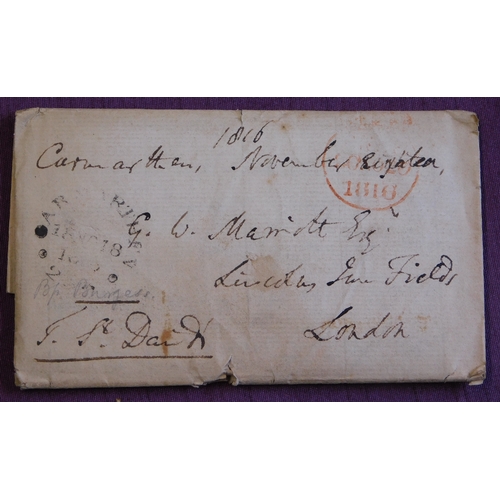 1816
Carmarthen, November eighteen,
1816
CARMARTHEN
18
G. W. Marriott Esqr
Lincolns Inn Fields
London
Bp Burgess
T. St. David